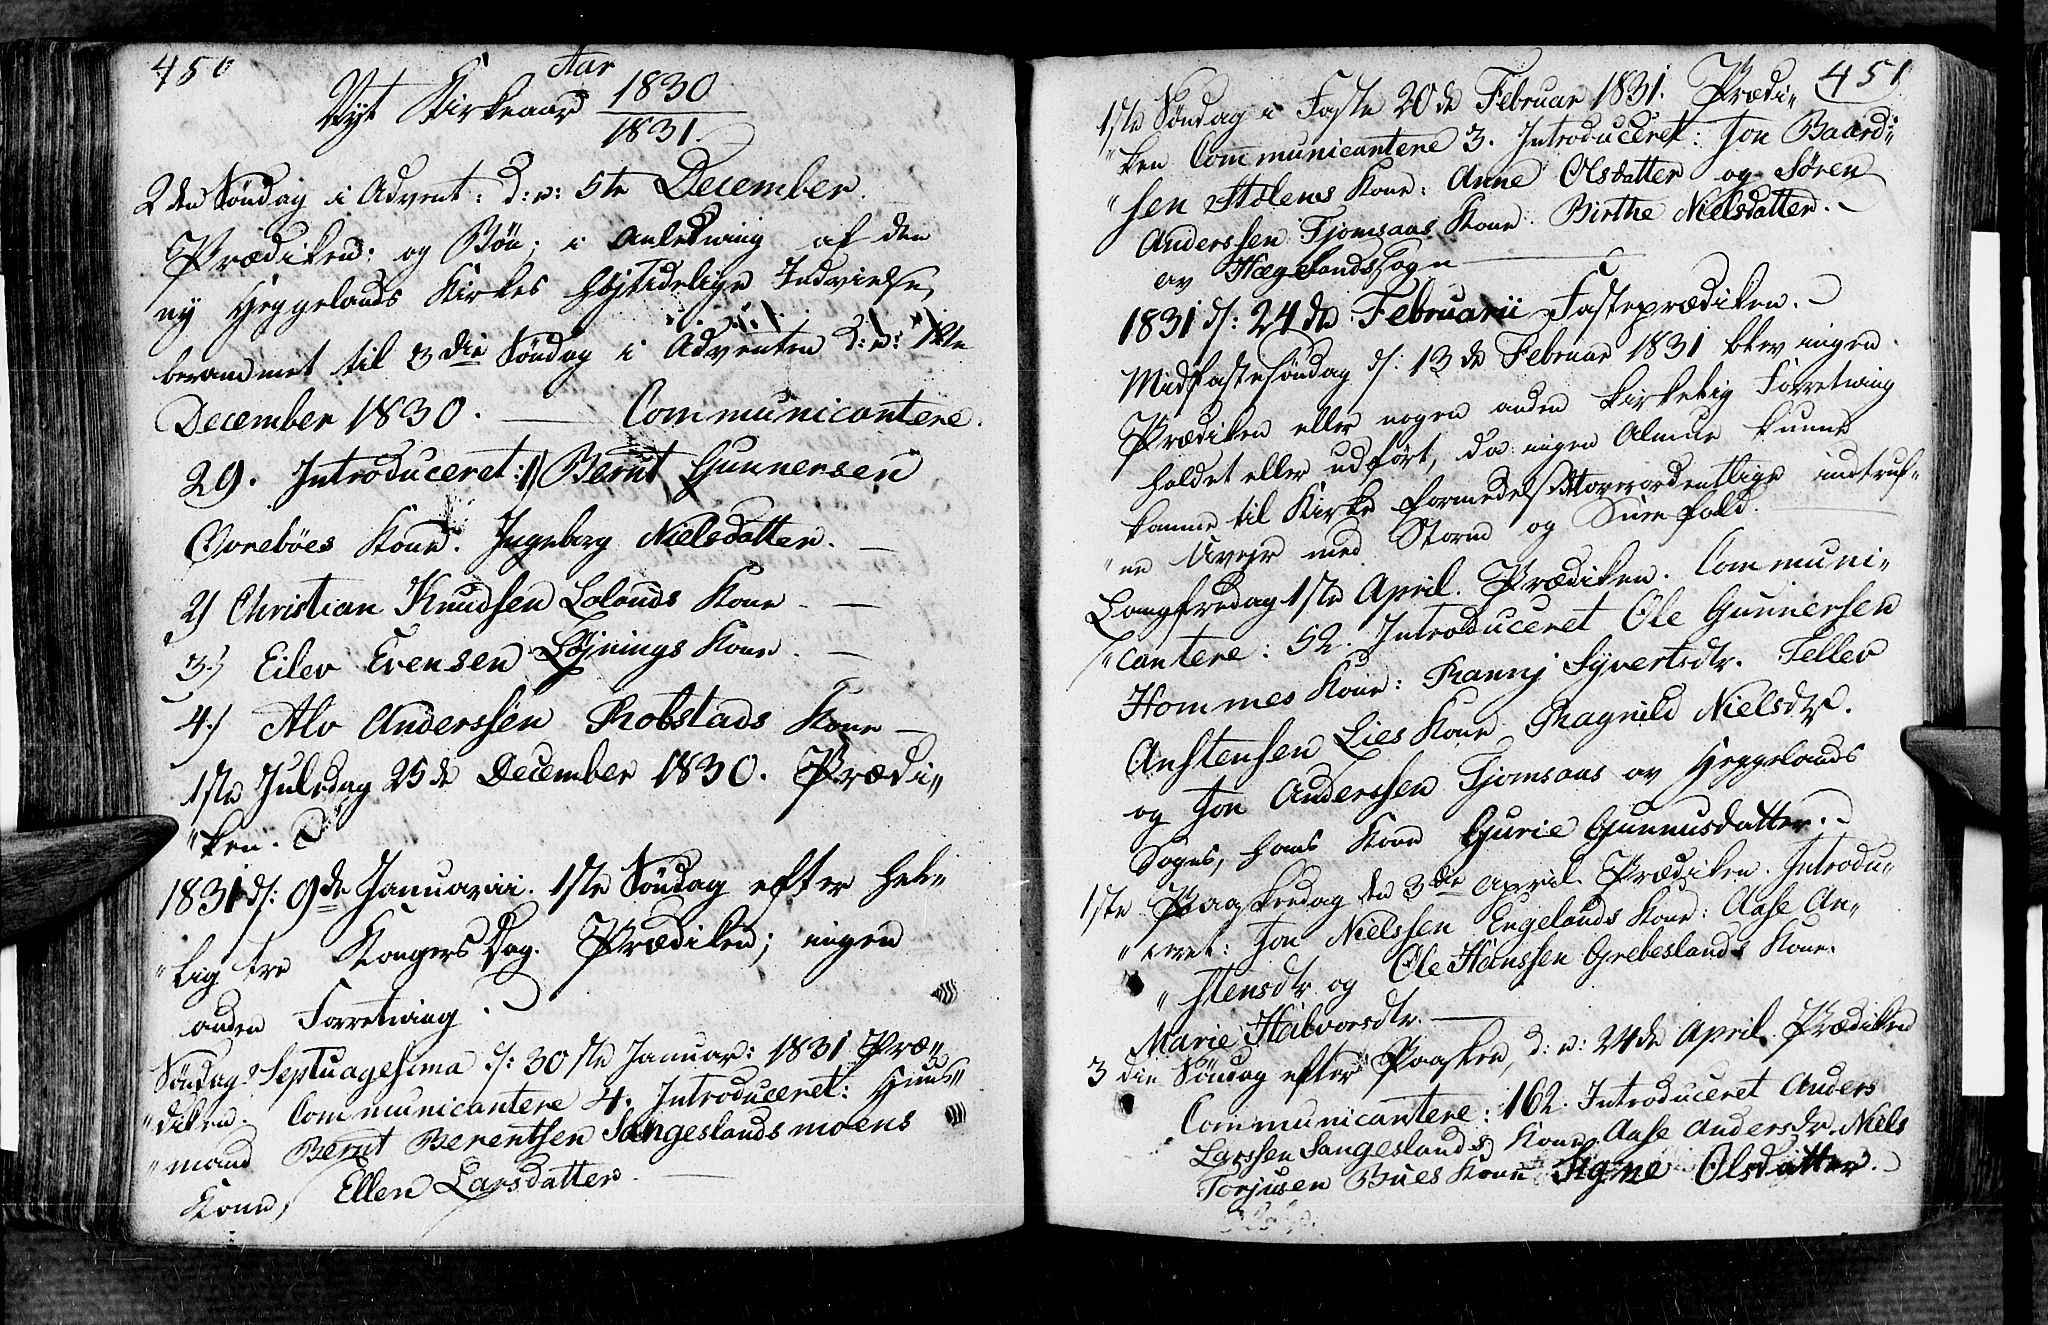 450
Aar
Nyt Kirkeaar 1830
1831.
2den Søndag i Advent: d: v: 5te December.
Prædiken: og Bön; i Anledning af den
ny Heggelands Kirkes højtidelige Indvielse,
beramnet til 3die Søndag i Adventen d: v: 12te
December 1830. — Communicantere.
29. Introduceret: 1) Bernt Gunnersen
Øvrebøes Kone. Ingeborg Nielsdatter. —
2) Christian Knudsen Lolands Kone. —
3.) Eilev Evensen Løjnings Kone. —
4.) Alv Anderssen Robstads Kone —
1ste Juledag 25de December 1830. Prædi-
"ken.
1831 d: 9de Januarii. 1ste Søndag efter Hel-
"lig tre Kongers Dag. Prædiken; ingen
anden Forretning.
Søndag Septuagesima d: 30ste Januar: 1831 Præ-
"diken. Communicantere 4. Introduceret: Huus-
"mand Bernt Berentsen Sangeslandsmoens
Kone, Ellen Larsdatter. —
451
1ste Søndag i Faste 20de Februar 1831. Prædi-
"ken Communicantere 3. Introduceret: Jon Baard-
"sen Stolens Kone: Anne Olsdatter og Søren
Anderssen Tjomsaas Kone. Birthe Nielsdatter. —
av Hægelands Sogn —
1831 d: 24de Februarii Fasteprædiken. —
Midfastesöndag d: 13de Februar 1831 blev ingen
Prædiken eller nogen anden kirkelig Forretning
holdet eller udført, da ingen Almue kunne
komme til Kirke formedelst overordentlige indtruf-
"ne Uvejr med Storm og Sneefald. —
Langfredag 1ste April. Prædiken. Communi-
"cantere: 52. Introduceret Ole Gunnersen
Hommes Kone: Rannj Syvertsdtr. Tellev
Anstensen Lies Kone Ragnild Nielsdtr.
og Jon Anderssen Tjomsaas av Heggelands
Sogn, hans Kone Gurie Gunnusdatter. —
1ste Paaskedag den 3die April. Prædiken. Introdu-
"ceret: Jon Nielssen Engelands Kone: Aase An-
"stensdtr og Ole Hanssen Grebeslands Kone.
Marie Halvorsdtr. —
3die Søndag efter Paasken, d: v: 24de April. Prædiken
Communicantere: 162. Introduceret Anders
Larssen Sangeslands Kone Aase Andersdr, Niels
Torjusen Bues Kone Signe Olsdatter. —